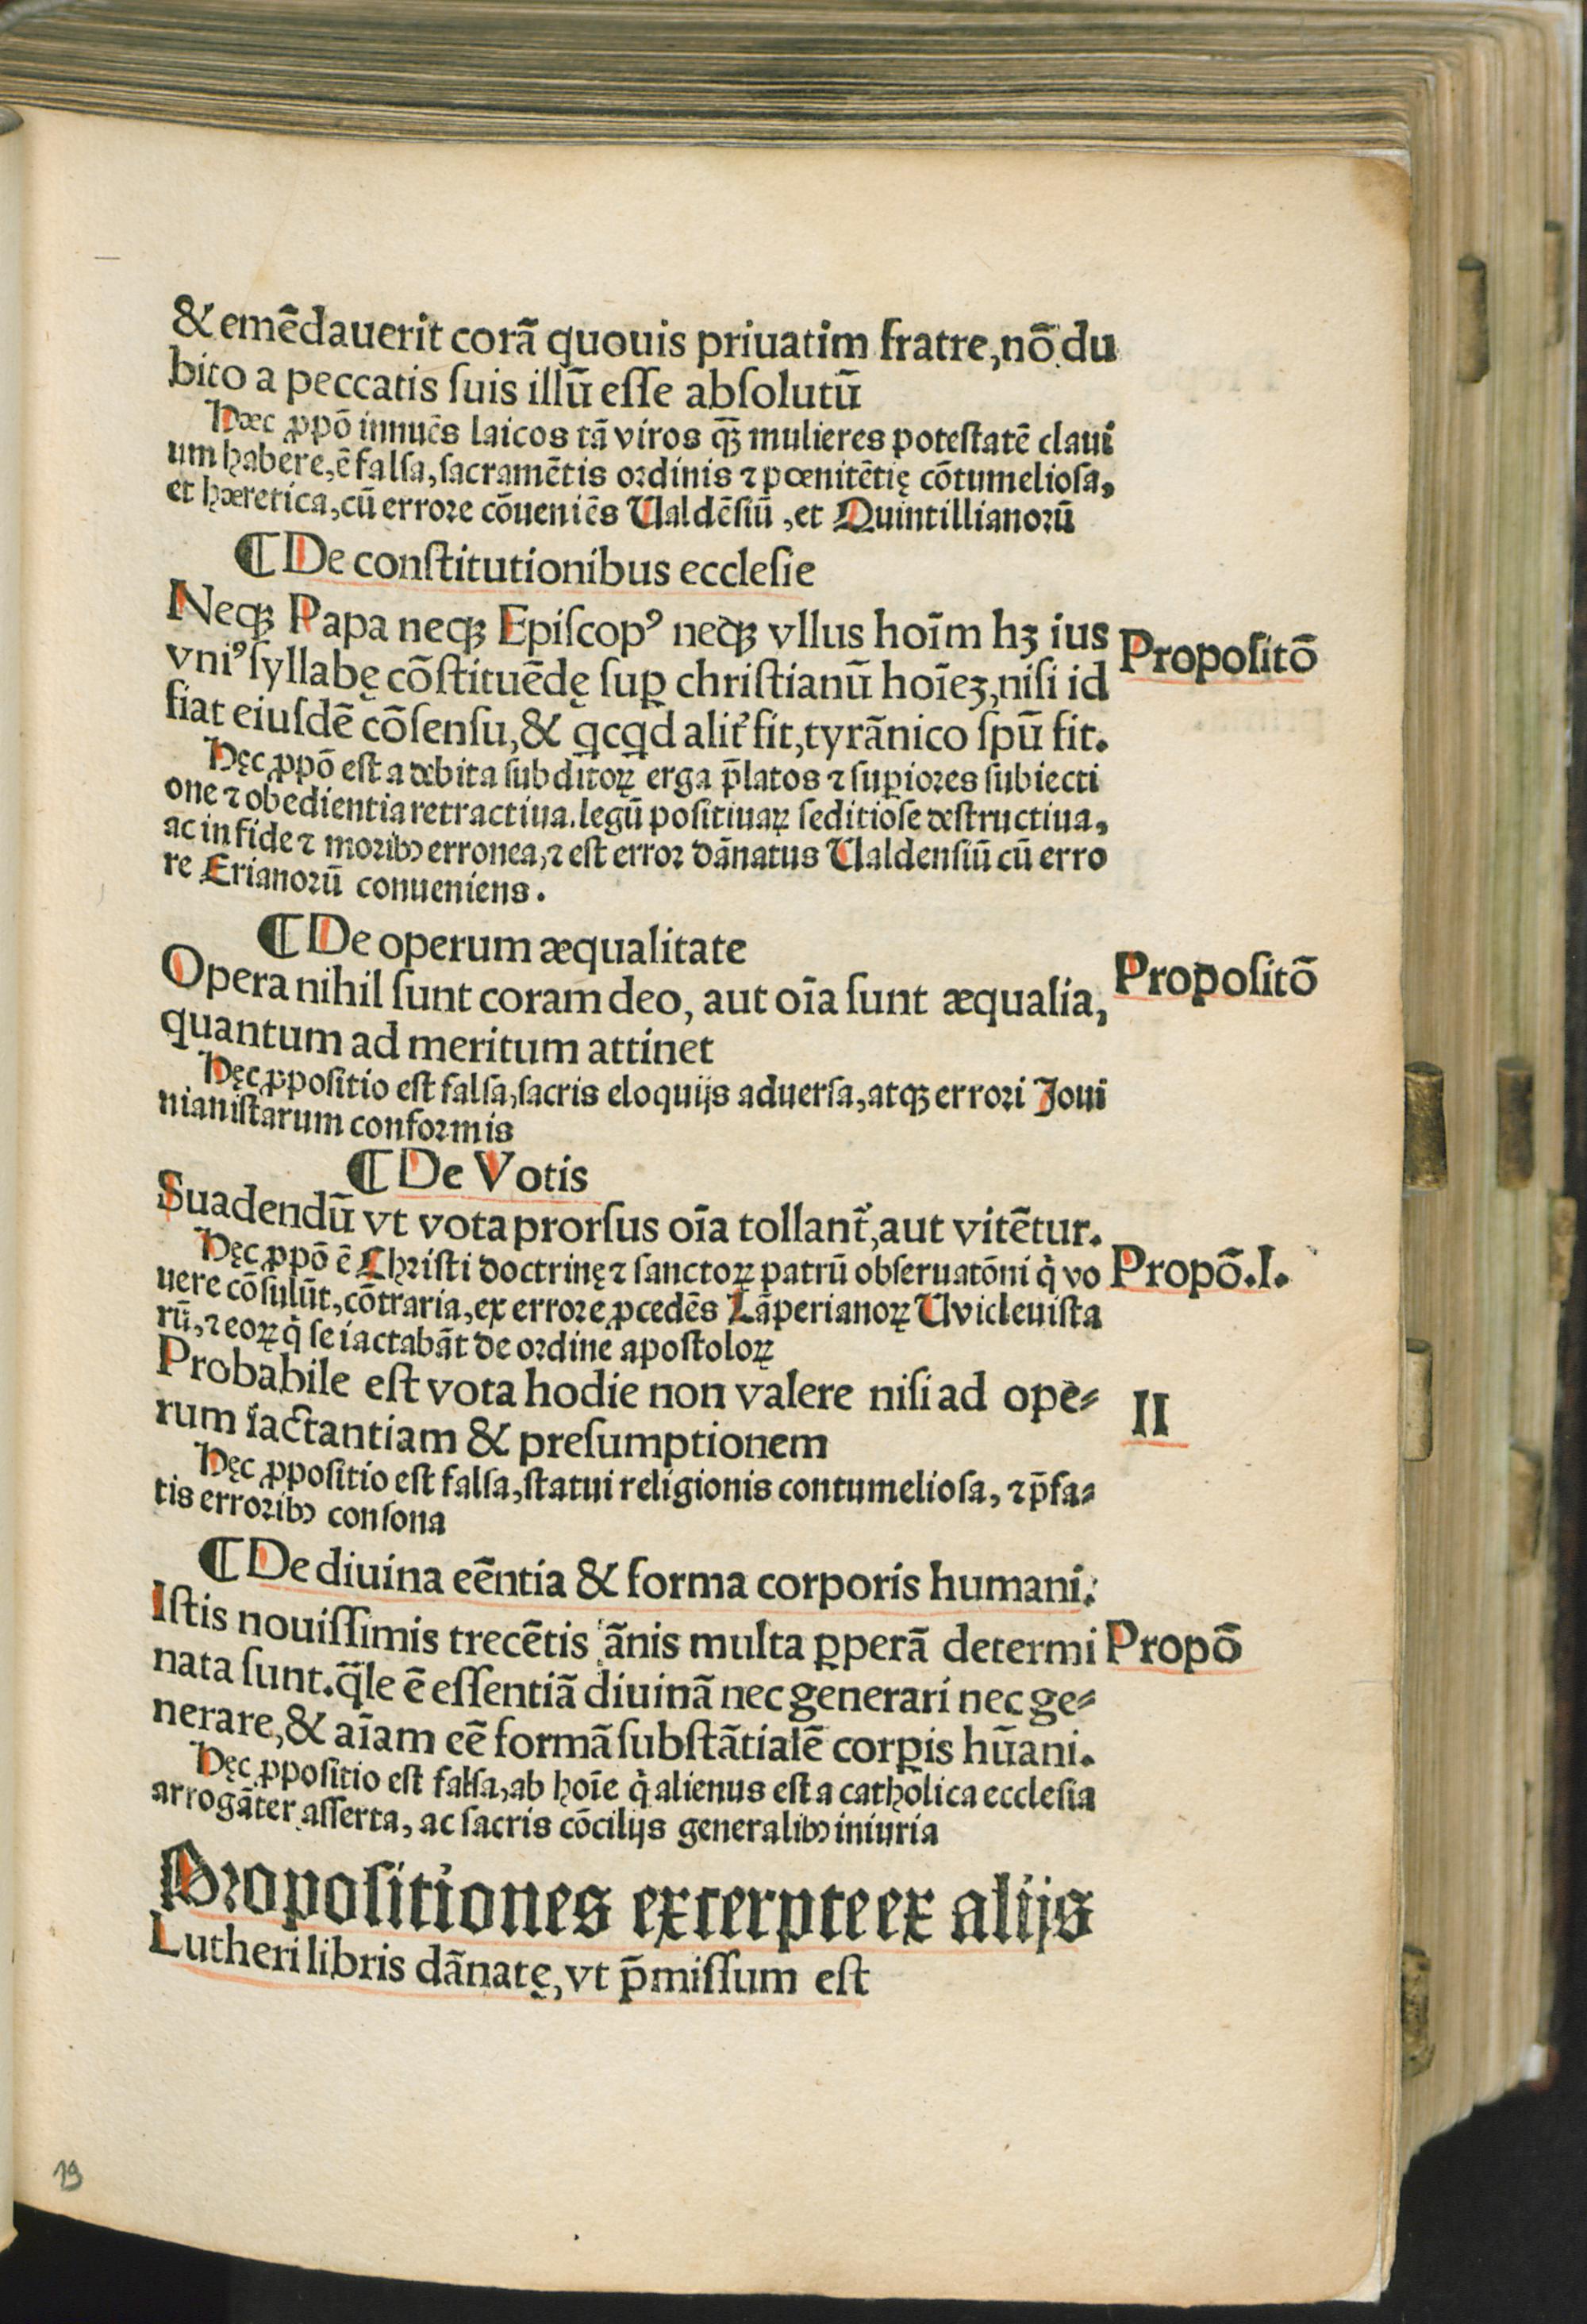 & emēdauerit corā quouis priuatim fratre, nō du
bito a peccatis ſuis illū eſſe abſolutū
Hæc ꝓpō innuēs laicos tā viros qȝ̄ mulieres poteſtatē claui
um habere, ē falſa, ſacramētis ordinis ⁊ pœnitētię cōtumelioſa,
et hæretica, cū errore cōueniēs Ualdēſiū, et Quintillianorū
¶ De conſtitutionibus eccleſie
Neqȝ Papa neqȝ Epiſcopꝰ neqȝ vllus hoīm hȝ ius
Propoſitō
vniꝰ ſyllabę cōſtituēdę ſuꝑ chriſtianū hoīeȝ, niſi id
fiat eiuſdē cōſenſu, & qcqd alit' fit, tyrānico ſpū fit.
Hęc ꝓpō eſt a debita ſubditoꝝ erga p̄latos ⁊ ſuꝑiores ſubiecti
one ⁊ obedientia retractiua. legū poſitiuaꝝ ſeditioſe deſtructiua,
ac in fide ⁊ moribꝰ erronea, ⁊ eſt error dānatus Ualdenſiū cū erro
re Erianorū conueniens.
¶ De operum æqualitate
Opera nihil ſunt coram deo, aut oīa ſunt æqualia,
Propoſitō
quantum ad meritum attinet
Hęc ꝓpoſitio eſt falſa, ſacris eloquijs aduerſa, atqȝ errori Joui
nianiſtarum conformis
¶ De Votis
Suadendū vt vota prorſus oīa tollant', aut vitētur.
Hęc ꝓpō ē Chriſti doctrinę ⁊ ſanctoꝝ patrū obſeruatōni q̇ vo
Propō.I.
uere cōſulūt, cōtraria, ex errore ꝓcedēs Lāperianoꝝ Uvicleuiſta
rū, ⁊ eoꝝ q̇ ſe iactabāt de ordine apoſtoloꝝ
Probabile eſt vota hodie non valere niſi ad ope⸗
II
rum iactantiam & preſumptionem
Hęc ꝓpoſitio eſt falſa, ſtatui religionis contumelioſa, ⁊ p̄fa⸗
tis erroribꝰ conſona
¶ De diuina eēntia & forma corporis humani.
Iſtis nouiſſimis trecētis ānis multa ꝑperā determi
Propō
nata ſunt. q̄le ē eſſentiā diuinā nec generari nec ge⸗
nerare, & aīam eē formā ſubſtātialē corꝑis hūani.
Hęc ꝓpoſitio eſt falſa, ab hoīe q̇ alienus eſt a catholica eccleſia
arrogāter aſſerta, ac ſacris cōcilijs generalibꝰ iniuria
Propoſitiones excerpte ex alijs
Lutheri libris dānatę, vt p̄miſſum eſt
19